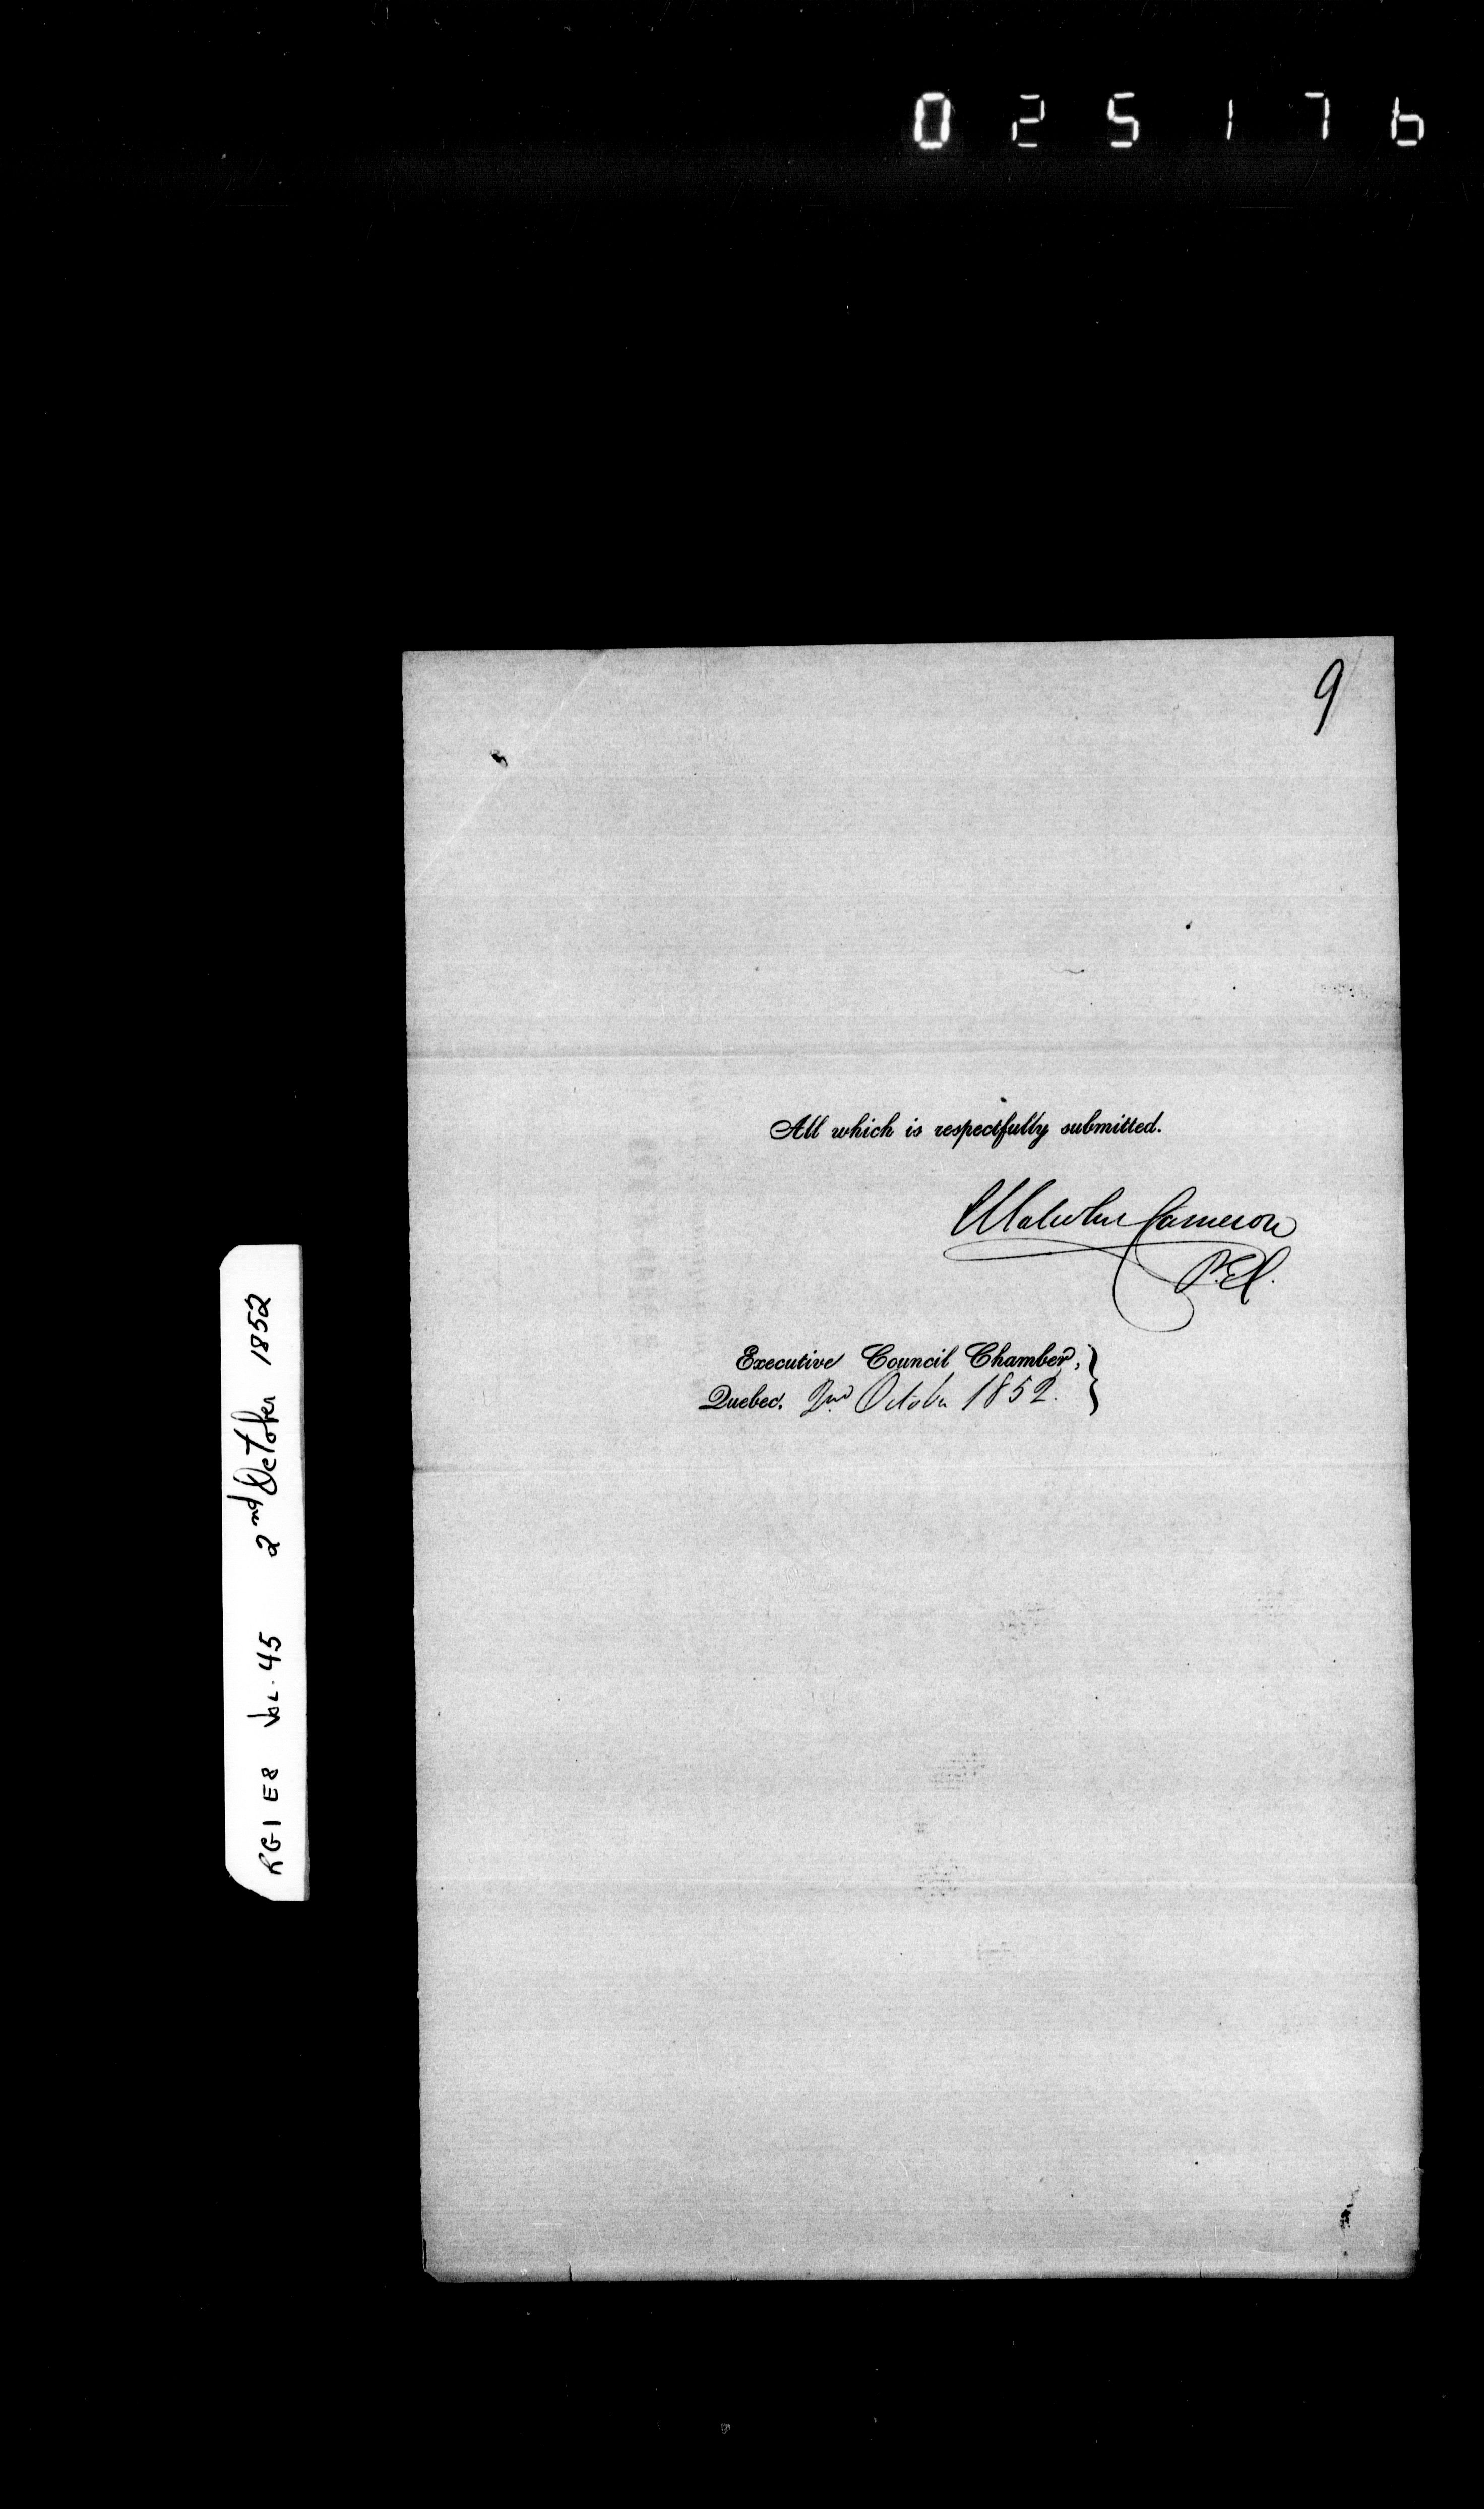 025176
9
All which is respectfully submitted.
Malcolm Cameron
P.E.C.
Executive Council Chamber, }
Quebec, 2nd October 1852.
RG1 E8 Vol. 45 2nd October 1852